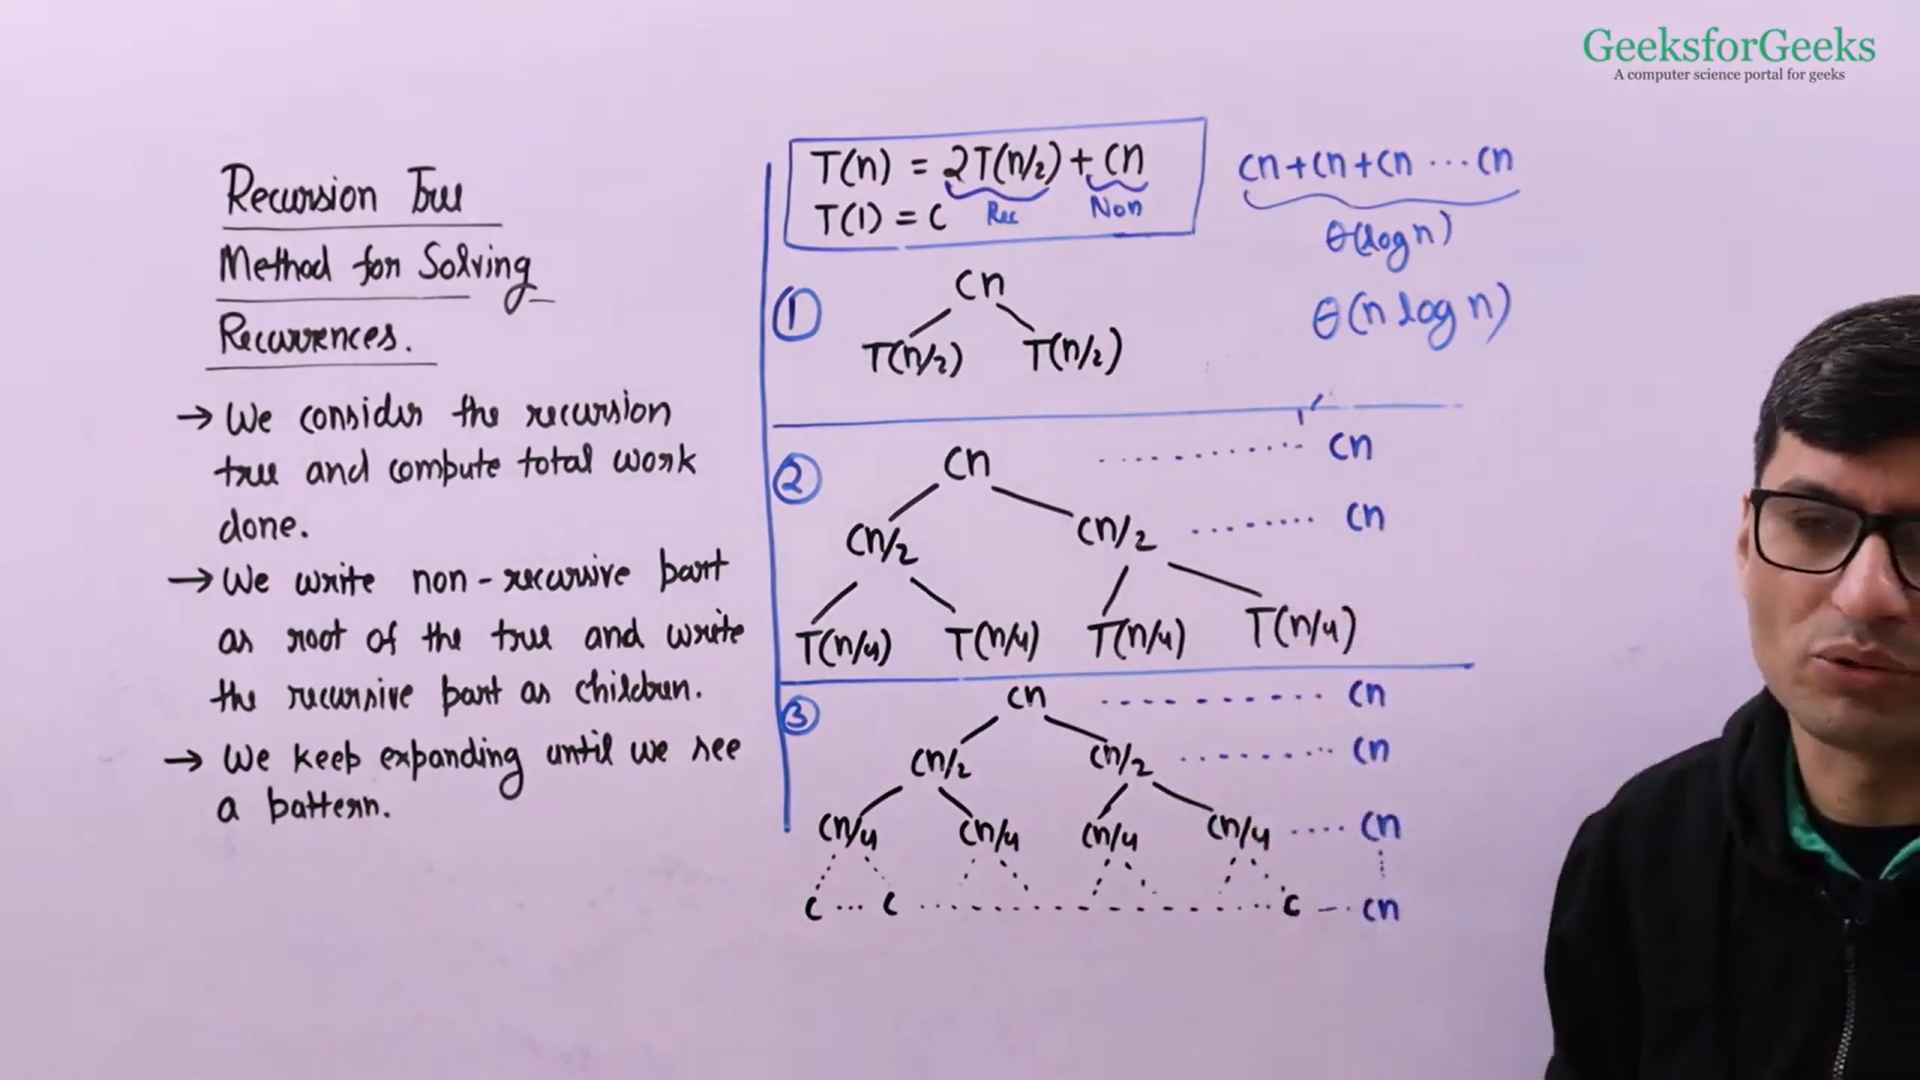 GeeksforGeeks
A computer science portal for geeks
Recursion Tree
Method for Solving
Recurrences.
→ We consider the recursion
tree and compute total work
done.
→ We write non-recursive part
as root of the tree and write
the recursive part as children.
→ We keep expanding until we see
a pattern.
T(n) = 2T(n/2) + cn
Rec Non
T(1) = C
cn+cn+cn ... cn
θ(log n)
θ(n log n)
1
cn
T(n/2) T(n/2)
2
cn ........... cn
cn/2 cn/2 ........ cn
T(n/4) T(n/4) T(n/4) T(n/4)
3
cn ........... cn
cn/2 cn/2 ......... cn
cn/4 cn/4 cn/4 cn/4 .... cn
c ... c ............ c -.. cn